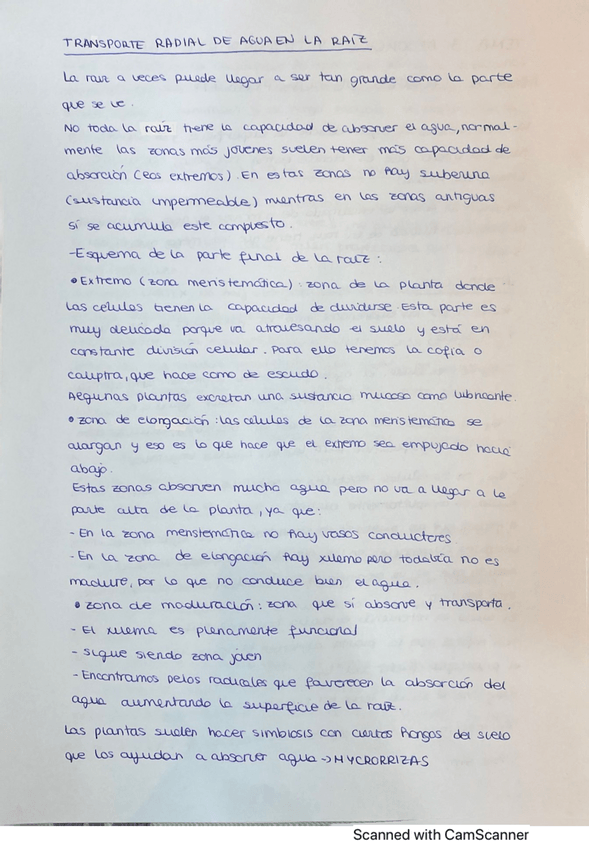 TRANSPORTE RADIAL DE AGUA EN LA RAÍZ
La raíz a veces puede llegar a ser tan grande como la parte
que se ve.
No toda la raíz tiene la capacidad de absorver el agua, normal-
mente las zonas más jóvenes suelen tener más capacidad de
absorción (los extremos). En estas zonas no hay suberina
(sustancia impermeable) mientras en las zonas antiguas
sí se acumula este compuesto.
-Esquema de la parte final de la raíz:
• Extremo (zona meristemática): zona de la planta donde
las células tienen la capacidad de dividirse. Esta parte es
muy delicada porque va atravesando el suelo y está en
constante división celular. Para ello tenemos la cofia o
caliptra, que hace como de escudo.
Algunas plantas excretan una sustancia mucosa como lubricante.
• zona de elongación: las células de la zona meristemática se
alargan y eso es lo que hace que el extremo sea empujado hacia
abajo.
Estas zonas absorven mucha agua pero no va a llegar a la
parte alta de la planta, ya que:
- En la zona meristemática no hay vasos conductores
- En la zona de elongación hay xilema pero todabía no es
madure, por lo que no conduce bien el agua.
• zona de maduración: zona que sí absorve y transporta.
- El xilema es plenamente funcional
- sigue siendo zona joven
- Encontramos pelos radicales que favorecen la absorción del
agua aumentando la superficie de la raíz.
Las plantas suelen hacer simbiosis con ciertos hongos del suelo
que los ayudan a absorver agua -> MYCRORRIZAS
Scanned with CamScanner